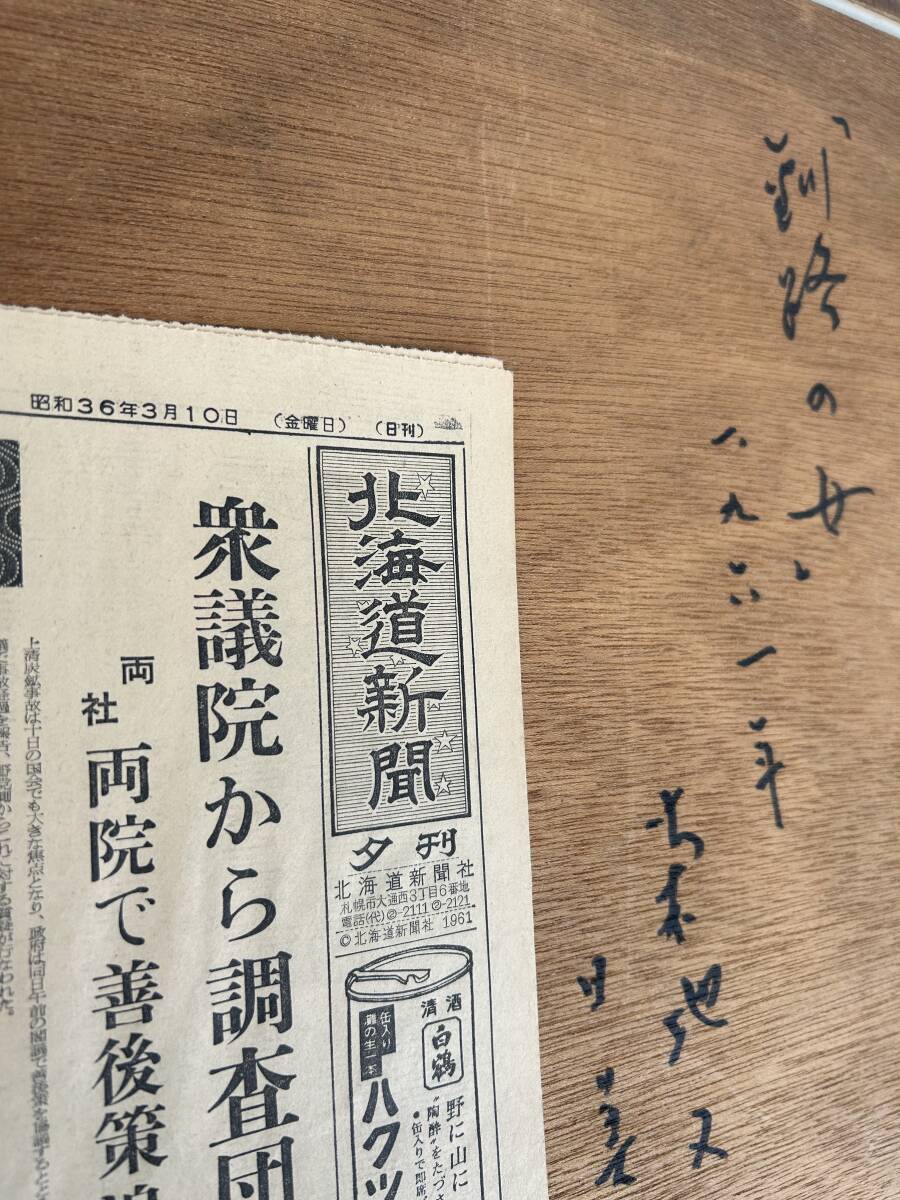 「釧路の女」
一九六一年
昭和36年3月10日 (金曜日) (日刊)
北海道新聞
夕刊
北海道新聞社
札幌市大通西3丁目6番地
電話(代)②-2111 ②-2121
©北海道新聞社 1961
清酒
白鶴
缶入り
灘の生一本
ハクツ
野に山に
"陶酔"をたづさ
●缶入りで即席
衆議院から調査団
両社
両院で善後策
上清炭鉱事故は十日の国会でも大きな焦点となり、政府は同日午前の閣議で善後策を協議すると